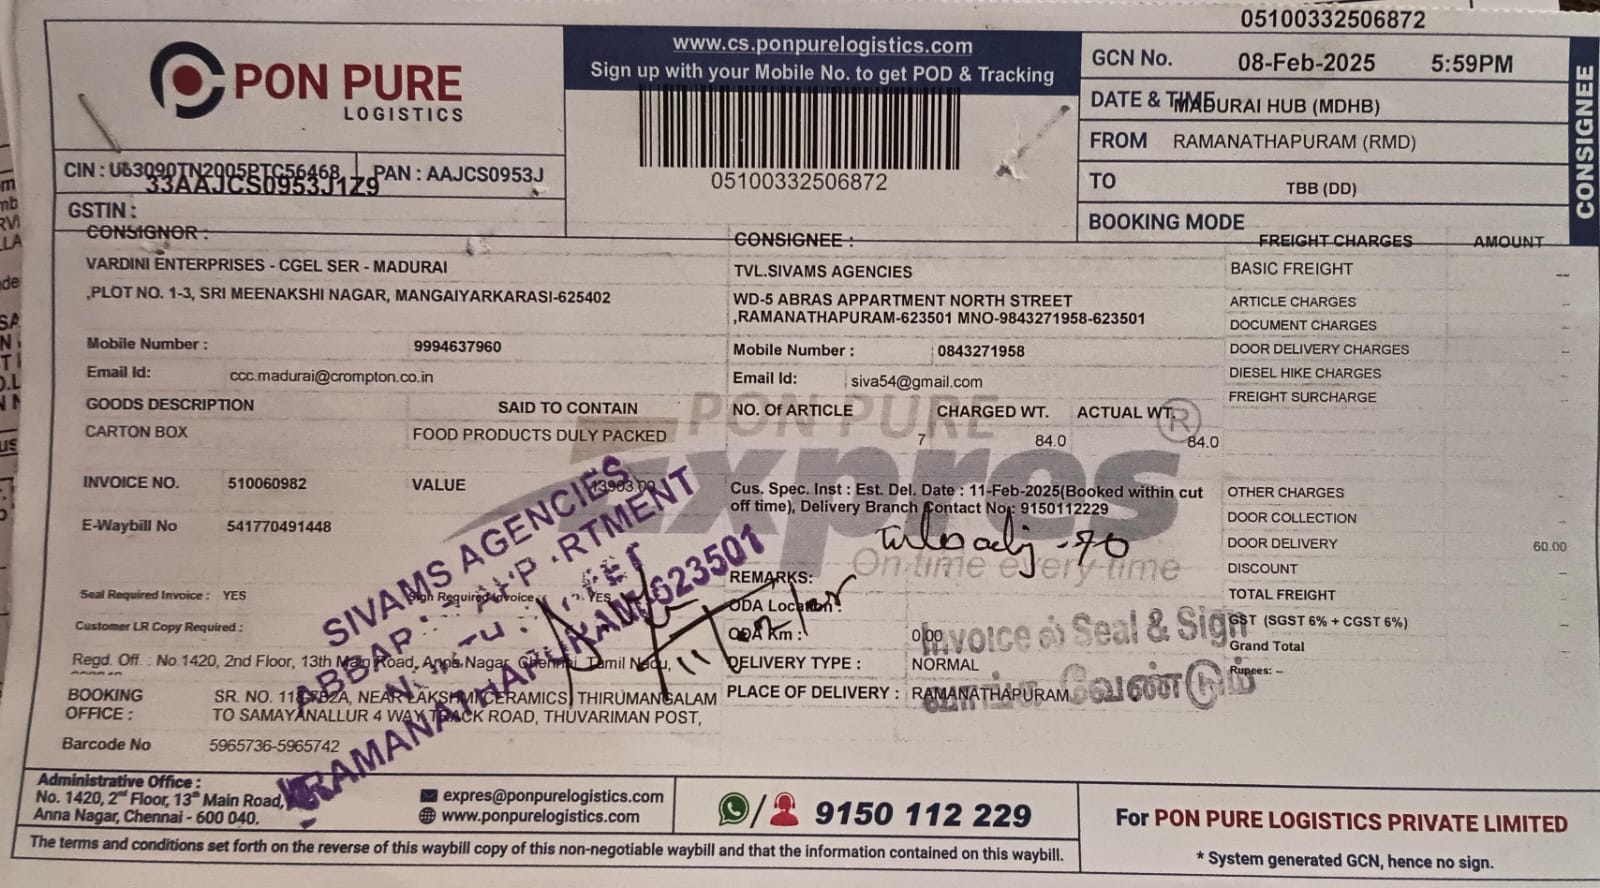 05100332506872
PON PURE
LOGISTICS
CIN : U63090TN2005PTC56468
PAN : AAJCS0953J
33AAJCS0953J1Z9
GSTIN :
www.cs.ponpurelogistics.com
Sign up with your Mobile No. to get POD & Tracking
05100332506872
GCN No. 08-Feb-2025 5:59PM
DATE & TIME MADURAI HUB (MDHB)
FROM RAMANATHAPURAM (RMD)
TO TBB (DD)
BOOKING MODE
CONSIGNEE
CONSIGNOR :
VARDINI ENTERPRISES - CGEL SER - MADURAI
,PLOT NO. 1-3, SRI MEENAKSHI NAGAR, MANGAIYARKARASI-625402
Mobile Number : 9994637960
Email Id: ccc.madurai@crompton.co.in
GOODS DESCRIPTION SAID TO CONTAIN
CARTON BOX FOOD PRODUCTS DULY PACKED
INVOICE NO. 510060982 VALUE 13903.00
E-Waybill No 541770491448
Seal Required Invoice : YES Sign Required Invoice : YES
Customer LR Copy Required :
Regd. Off. : No.1420, 2nd Floor, 13th Main Road, Anna Nagar, Chennai, Tamil Nadu,
BOOKING OFFICE : SR. NO. NEAR LAKSHMI CERAMICS, THIRUMANGALAM
TO SAMAYANALLUR 4 WAY TRACK ROAD, THUVARIMAN POST,
Barcode No 5965736-5965742
CONSIGNEE :
TVL.SIVAMS AGENCIES
WD-5 ABRAS APPARTMENT NORTH STREET
,RAMANATHAPURAM-623501 MNO-9843271958-623501
Mobile Number : 0843271958
Email Id: siva54@gmail.com
NO. Of ARTICLE CHARGED WT. ACTUAL WT.
7 84.0 84.0
PON PURE
Expres
®
On time every time
Cus. Spec. Inst : Est. Del. Date : 11-Feb-2025(Booked within cut
off time), Delivery Branch Contact No : 9150112229
-70
REMARKS:
ODA Location :
ODA Km : 0.00
DELIVERY TYPE : NORMAL
PLACE OF DELIVERY : RAMANATHAPURAM
FREIGHT CHARGES AMOUNT
BASIC FREIGHT --
ARTICLE CHARGES –
DOCUMENT CHARGES –
DOOR DELIVERY CHARGES –
DIESEL HIKE CHARGES –
FREIGHT SURCHARGE –
OTHER CHARGES –
DOOR COLLECTION –
DOOR DELIVERY 60.00
DISCOUNT –
TOTAL FREIGHT –
GST (SGST 6% + CGST 6%) –
Grand Total
Rupees: –
SIVAMS AGENCIES
RAMANATHAPURAM-623501
Invoice ல் Seal & Sign
வாங்க வேண்டும்
Administrative Office :
No. 1420, 2nd Floor, 13th Main Road,
Anna Nagar, Chennai - 600 040.
expres@ponpurelogistics.com
www.ponpurelogistics.com
/ 9150 112 229
For PON PURE LOGISTICS PRIVATE LIMITED
* System generated GCN, hence no sign.
The terms and conditions set forth on the reverse of this waybill copy of this non-negotiable waybill and that the information contained on this waybill.